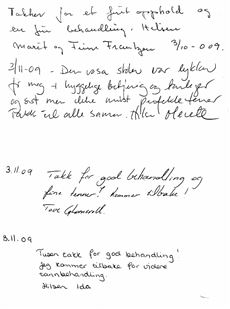 Takker for et fint opphold og
en fin behandling. Hilsen
Marit og Finn Frantzen 3/10-009.
3/11-09 - Den rosa stolen var lykken
for meg - i hyggelige betjening og
og sist men ikke minst perfekte tenner
Takk til alle sammen.
3.11.09
Takk for god behandling og
fine tenner! Kommer tilbake!
Tove
3.11.09
Tusen takk for god behandling!
Jeg kommer tilbake for videre
tannbehandling.
Hilsen Ida